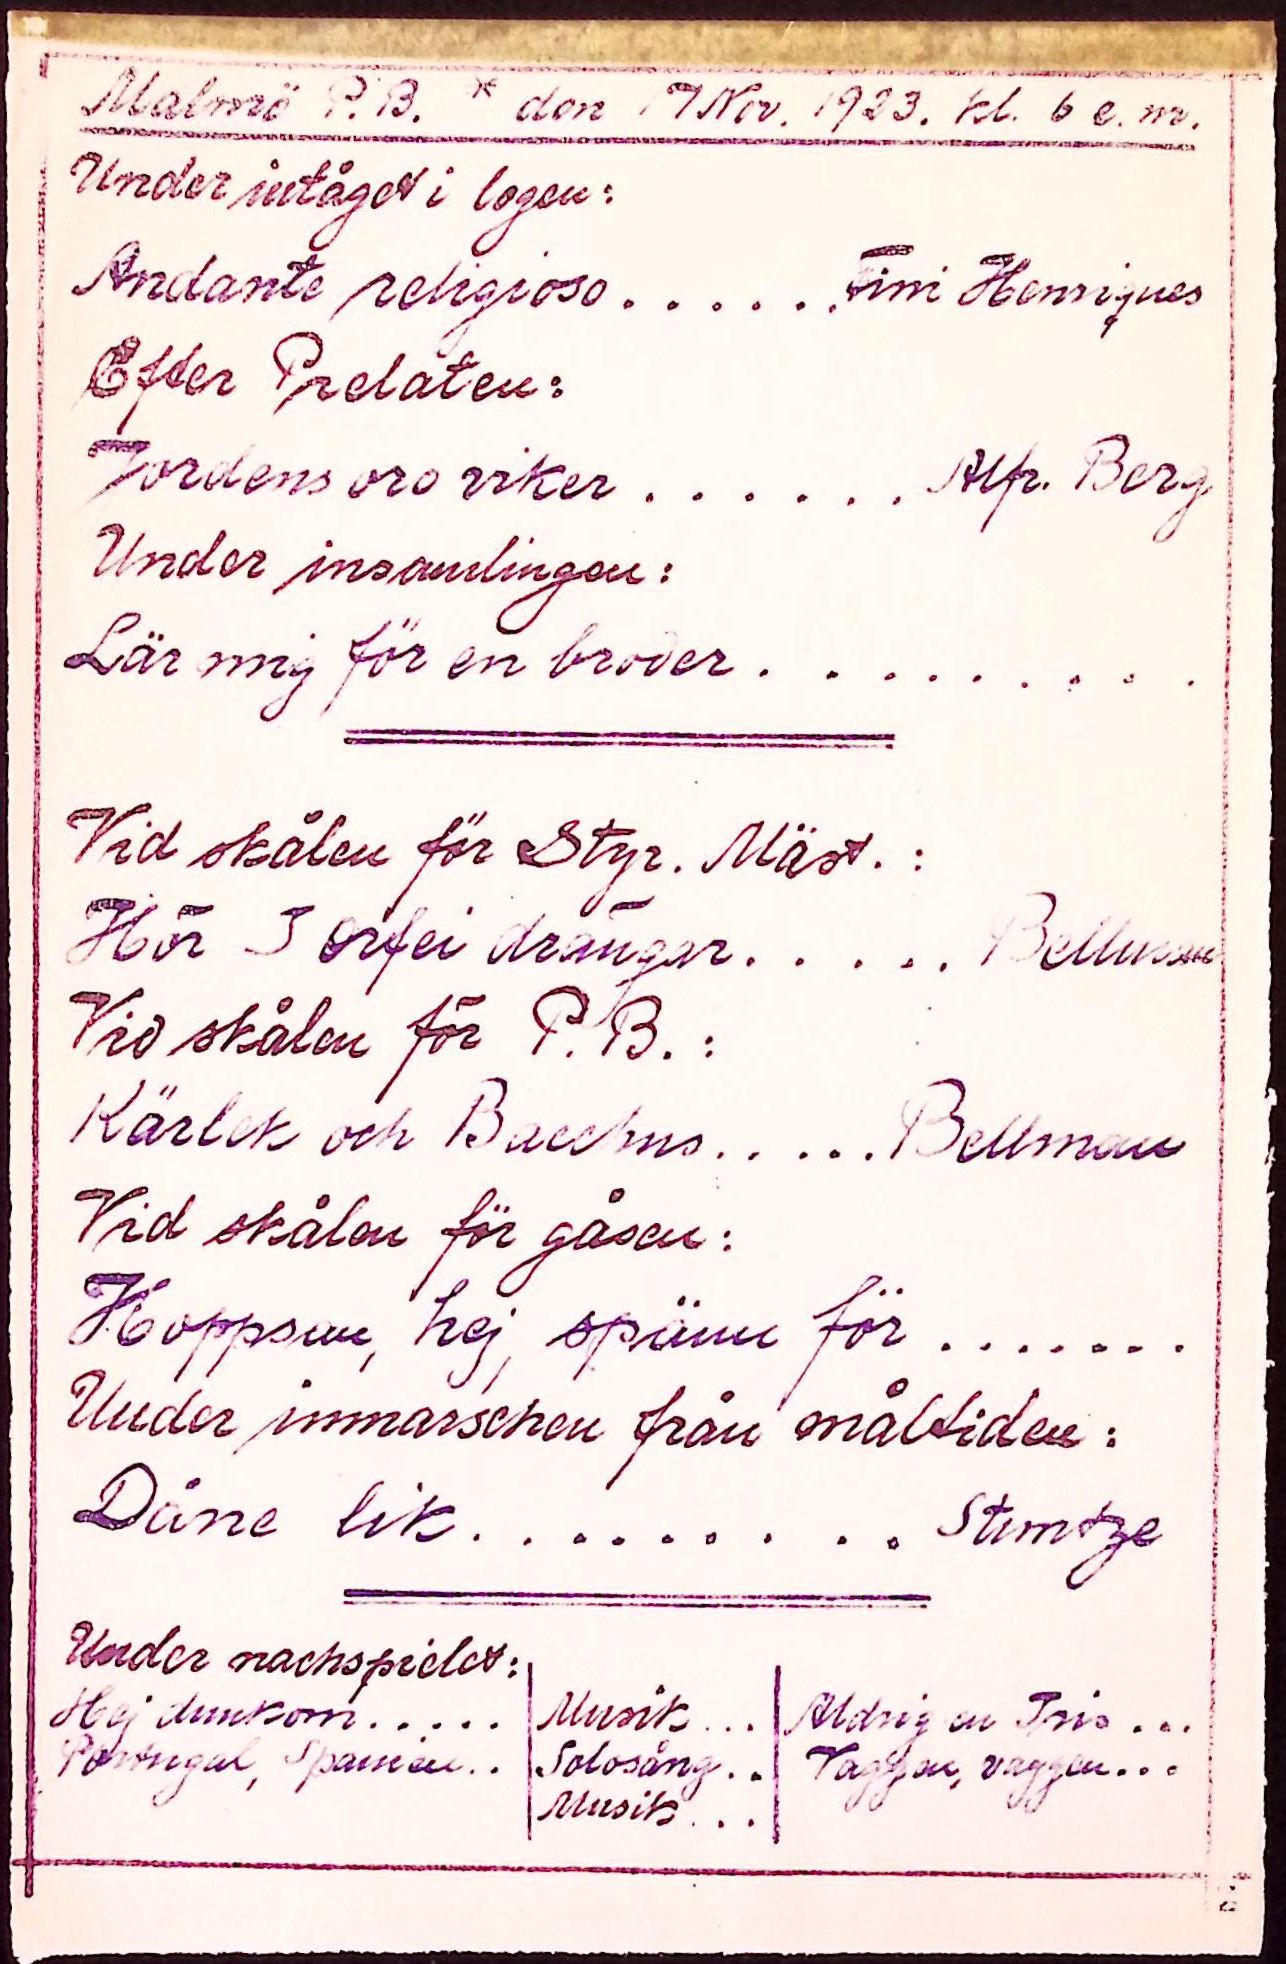 Malmö P.B. * den 17 Nov. 1923. kl. 6 e.m.
Under intåget i logen:
Andante religioso . . . . . . Fini Henriques
Efter Prelaten:
Jordens oro viker . . . . . . Alfr. Berg
Under insamlingen:
Lär mig för en broder . . . . . . . . .
Vid skålen för Styr. Mäst. :
Hör I Orfei drängar . . . . . Bellman
Vid skålen för P.B. :
Kärlek och Bacchus . . . . . Bellman
Vid skålen för gåsen :
Hoppsan, hej, spänn för . . . . . . .
Under inmarschen från måltiden :
Dåne lik . . . . . . . . . Stuntze
Under nachspielet :
Hej dunkom . . . . . Musik . . . Aldrig en Iris . . .
Portugal, Spanien . . Solosång . . Vaggen, vaggen . . .
Musik . . .